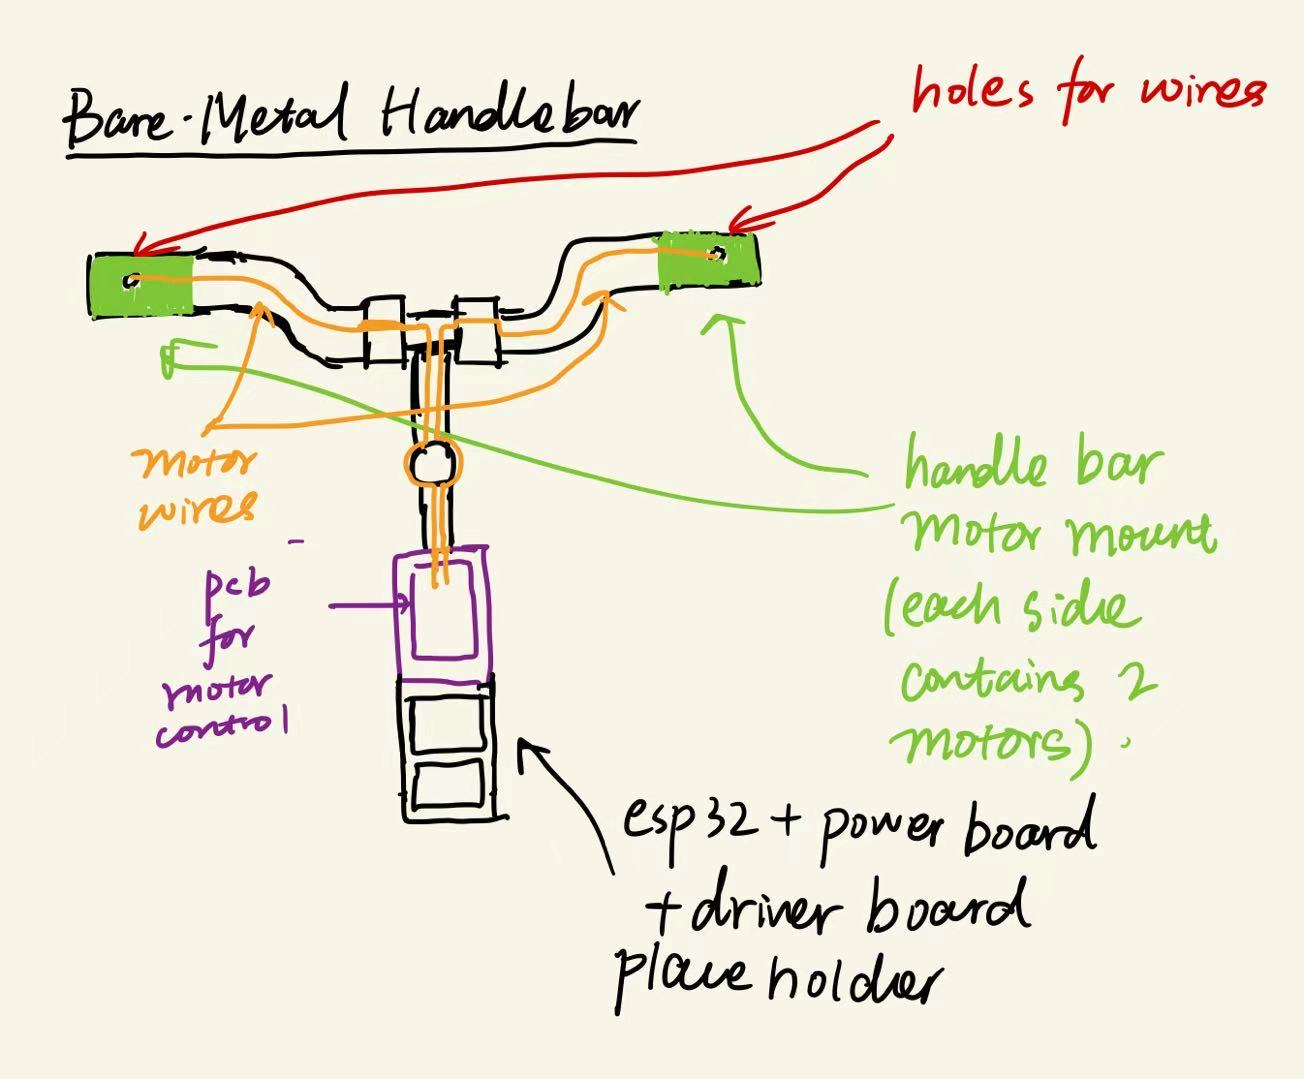 Bare-Metal Handlebar
holes for wires
motor
wires
handle bar
motor mount
(each side
contains 2
motors).
pcb
for
motor
control
esp32 + power board
+ driver board
place holder